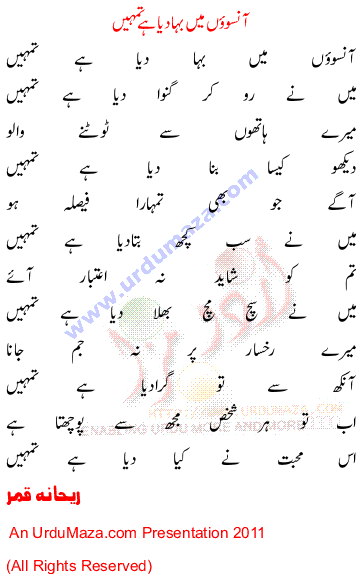 آنسوؤں میں بہا دیا ہے تمہیں
آنسوؤں میں بہا دیا ہے تمہیں
میں نے رو کر گنوا دیا ہے تمہیں
میرے ہاتھوں سے ٹوٹنے والو
دیکھو کیسا بنا دیا ہے تمہیں
آگے جو بھی تمہارا فیصلہ ہو
میں نے سب کچھ بتادیا ہے تمہیں
تم کو شاید نہ اعتبار آئے
میں نے سچ مچ بھلا دیا ہے تمہیں
میرے رخسار پر نہ جم جانا
آنکھ سے تو گرادیا ہے تمہیں
اب تو ہر شخص مجھ سے پوچھتا ہے
اس محبت نے کیا دیا ہے تمہیں
ریحانہ قمر
An UrduMaza.com Presentation 2011
(All Rights Reserved)
www.urdumaza.com
اردو مزہ
HTTP://WWW.URDUMAZA.COM
ENABLING URDU MOVE AND MORE